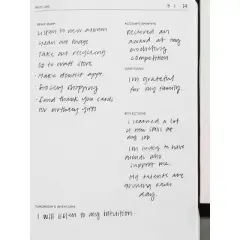 listen to new album
clean out fridge
take out recycling
go to craft store
make dentist appt.
Grocery shopping
Send thank you cards
for birthday gifts
ACCOMPLISHMENTS
Received an
award at my
crocheting
competition
I'm grateful
for my family.
REFLECTIONS
I learned a lot
of new skills at
my job
I'm lucky to have
friends who
support me.
My talents are
growing each
day.
TOMORROW'S INTENTIONS
I will listen to my intuition.